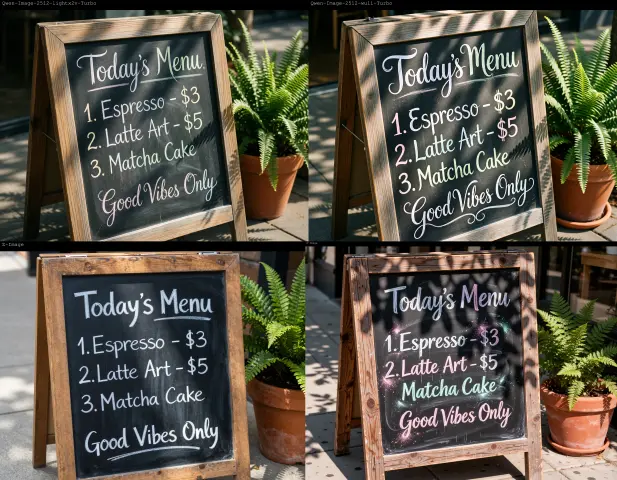 Qwen-Image-2512-lightx2v-Turbo
Today's Menu
1. Espresso - $3
2. Latte Art - $5
3. Matcha Cake
Good Vibes Only
Qwen-Image-2512-wuli-Turbo
Today's Menu
1. Espresso - $3
2. Latte Art - $5
3. Matcha Cake
Good Vibes Only
Z-Image
Today's Menu
1. Espresso - $3
2. Latte Art - $5
3. Matcha Cake
Good Vibes Only
Today's Menu
1. Espresso - $3
2. Latte Art - $5
Matcha Cake
Good Vibes Only